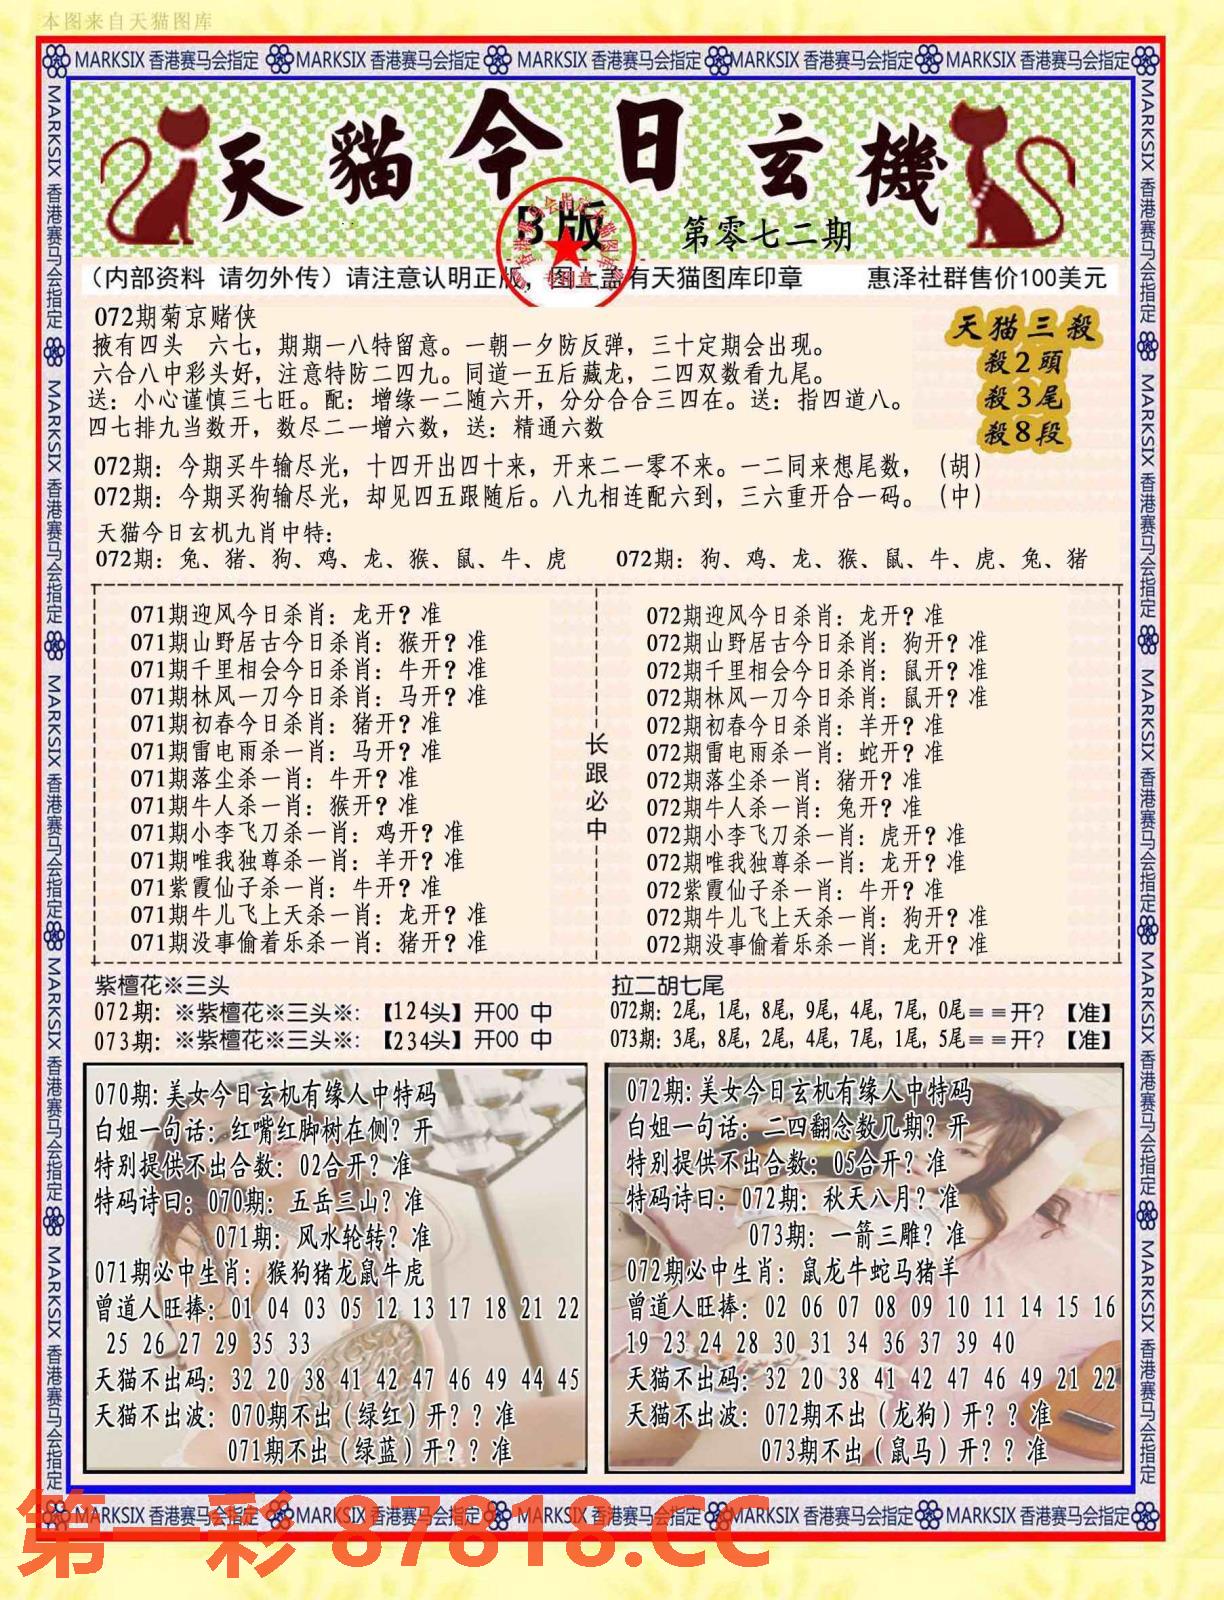 本图来自天猫图库
MARKSIX 香港赛马会指定 MARKSIX 香港赛马会指定 MARKSIX 香港赛马会指定 MARKSIX 香港赛马会指定 MARKSIX 香港赛马会指定
天貓今日玄機
B版
第零七二期
（内部资料 请勿外传）请注意认明正版，图上盖有天猫图库印章
惠泽社群售价100美元
072期菊京赌侠
掖有四头 六七，期期一八特留意。一朝一夕防反弹，三十定期会出现。
六合八中彩头好，注意特防二四九。同道一五后藏龙，二四双数看九尾。
送：小心谨慎三七旺。配：增缘一二随六开，分分合合三四在。送：指四道八。
四七排九当数开，数尽二一增六数，送：精通六数
天猫三殺
殺2頭
殺3尾
殺8段
072期：今期买牛输尽光，十四开出四十来，开来二一零不来。一二同来想尾数，（胡）
072期：今期买狗输尽光，却见四五跟随后。八九相连配六到，三六重开合一码。（中）
天猫今日玄机九肖中特：
072期：兔、猪、狗、鸡、龙、猴、鼠、牛、虎
072期：狗、鸡、龙、猴、鼠、牛、虎、兔、猪
071期迎风今日杀肖：龙开？准
071期山野居古今日杀肖：猴开？准
071期千里相会今日杀肖：牛开？准
071期林风一刀今日杀肖：马开？准
071期初春今日杀肖：猪开？准
071期雷电雨杀一肖：马开？准
071期落尘杀一肖：牛开？准
071期牛人杀一肖：猴开？准
071期小李飞刀杀一肖：鸡开？准
071期唯我独尊杀一肖：羊开？准
071紫霞仙子杀一肖：牛开？准
071期牛儿飞上天杀一肖：龙开？准
071期没事偷着乐杀一肖：猪开？准
长跟必中
072期迎风今日杀肖：龙开？准
072期山野居古今日杀肖：狗开？准
072期千里相会今日杀肖：鼠开？准
072期林风一刀今日杀肖：鼠开？准
072期初春今日杀肖：羊开？准
072期雷电雨杀一肖：蛇开？准
072期落尘杀一肖：猪开？准
072期牛人杀一肖：兔开？准
072期小李飞刀杀一肖：虎开？准
072期唯我独尊杀一肖：龙开？准
072紫霞仙子杀一肖：牛开？准
072期牛儿飞上天杀一肖：狗开？准
072期没事偷着乐杀一肖：龙开？准
紫檀花※三头
072期：※紫檀花※三头※：【124头】开00 中
073期：※紫檀花※三头※：【234头】开00 中
拉二胡七尾
072期：2尾，1尾，8尾，9尾，4尾，7尾，0尾＝＝开？【准】
073期：3尾，8尾，2尾，4尾，7尾，1尾，5尾＝＝开？【准】
070期：美女今日玄机有缘人中特码
白姐一句话：红嘴红脚树在侧？开
特别提供不出合数：02合开？准
特码诗曰：070期：五岳三山？准
071期：风水轮转？准
071期必中生肖：猴狗猪龙鼠牛虎
曾道人旺捧：01 04 03 05 12 13 17 18 21 22
25 26 27 29 35 33
天猫不出码：32 20 38 41 42 47 46 49 44 45
天猫不出波：070期不出（绿红）开？？准
071期不出（绿蓝）开？？准
072期：美女今日玄机有缘人中特码
白姐一句话：二四翻念数几期？开
特别提供不出合数：05合开？准
特码诗曰：072期：秋天八月？准
073期：一箭三雕？准
072期必中生肖：鼠龙牛蛇马猪羊
曾道人旺捧：02 06 07 08 09 10 11 14 15 16
19 23 24 28 30 31 34 36 37 39 40
天猫不出码：32 20 38 41 42 47 46 49 21 22
天猫不出波：072期不出（龙狗）开？？准
073期不出（鼠马）开？？准
MARKSIX 香港赛马会指定 MARKSIX 香港赛马会指定 MARKSIX 香港赛马会指定 MARKSIX 香港赛马会指定 MARKSIX 香港赛马会指定
MARKSIX 香港赛马会指定 MARKSIX 香港赛马会指定 MARKSIX 香港赛马会指定 MARKSIX 香港赛马会指定 MARKSIX 香港赛马会指定
MARKSIX 香港赛马会指定 MARKSIX 香港赛马会指定 MARKSIX 香港赛马会指定 MARKSIX 香港赛马会指定 MARKSIX 香港赛马会指定
第一彩 87818.CC